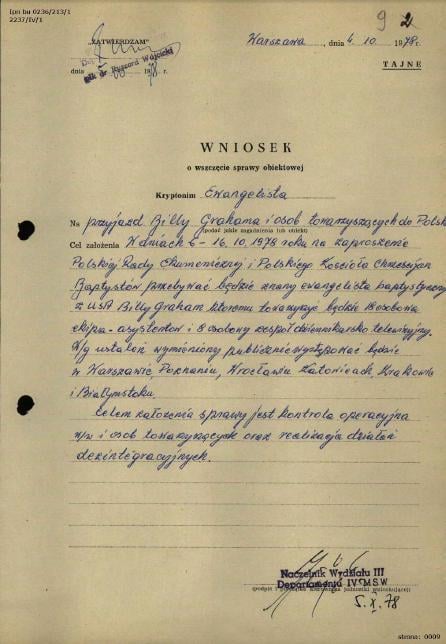 Ipn bu 0236/213/1
2237/IV/1
9 2
"ZATWIERDZAM"
Warszawa, dnia 4.10. 1978 r.
płk dr Ryszard Wójcicki
dnia 1978 r.
TAJNE
WNIOSEK
o wszczęcie sprawy obiektowej
Kryptonim Ewangelista
Na przyjazd Billy Grahama i osób towarzyszących do Polski
(podać jakie zagadnienia lub obiekt)
Cel założenia W dniach 6-16.10.1978 roku na zaproszenie
Polskiej Rady Ekumenicznej i Polskiego Kościoła Chrześcijan
Baptystów przebywać będzie znany ewangelista baptystyczny
z USA Billy Graham któremu towarzyszyć będzie 18 osobowa
ekipa - asystentów i 8 osobowy zespół dziennikarsko telewizyjny.
W/g ustaleń wymieniony publicznie występować będzie
w Warszawie, Poznaniu, Wrocławiu, Katowicach, Krakowie
i Białymstoku.
Celem założenia sprawy jest kontrola operacyjna
w/w i osób towarzyszących oraz realizacja działań
dezintegracyjnych.
Naczelnik Wydziału III
Departamentu IV MSW
(podpis i pieczątka kierownika jednostki wnioskującej)
5.X.78
strona: 0009